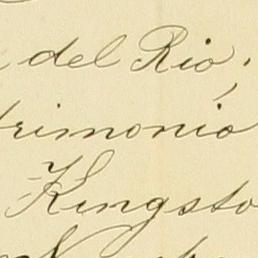 del Rio,
trimonio
Kingsto